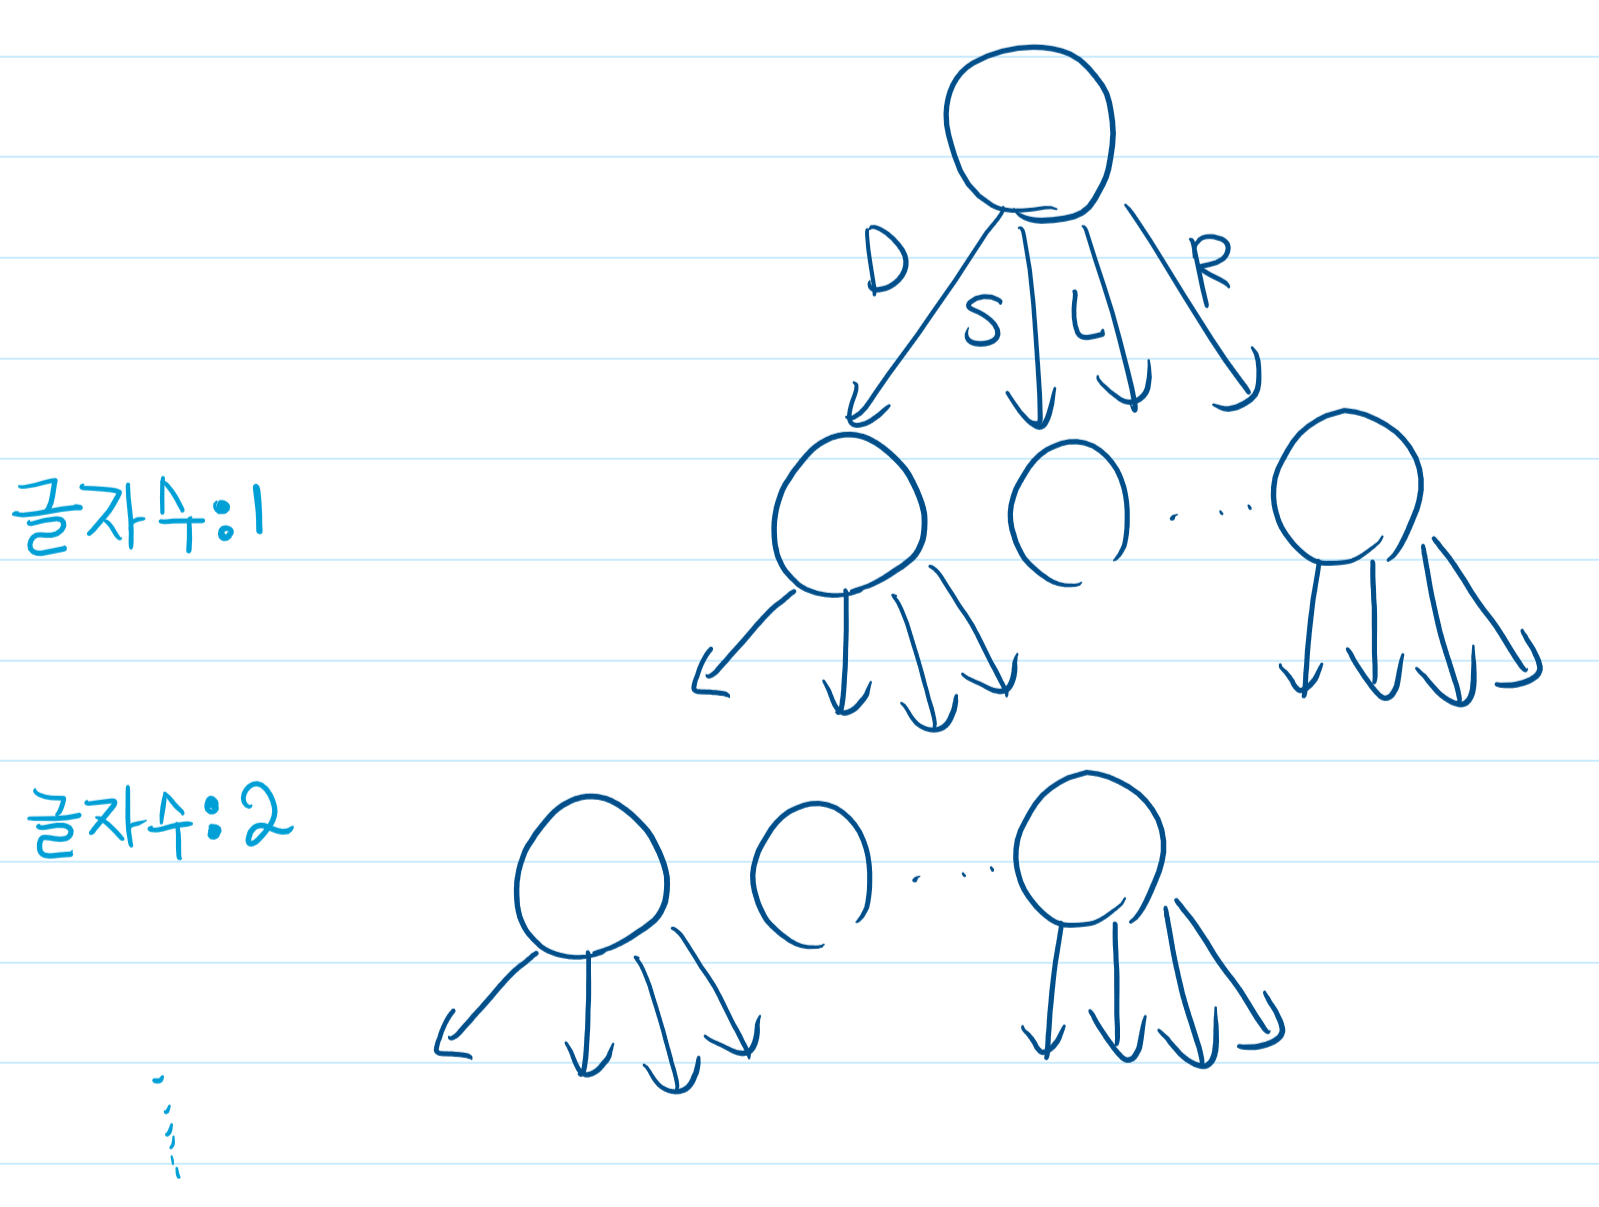 D S L R
글자수:1
글자수:2